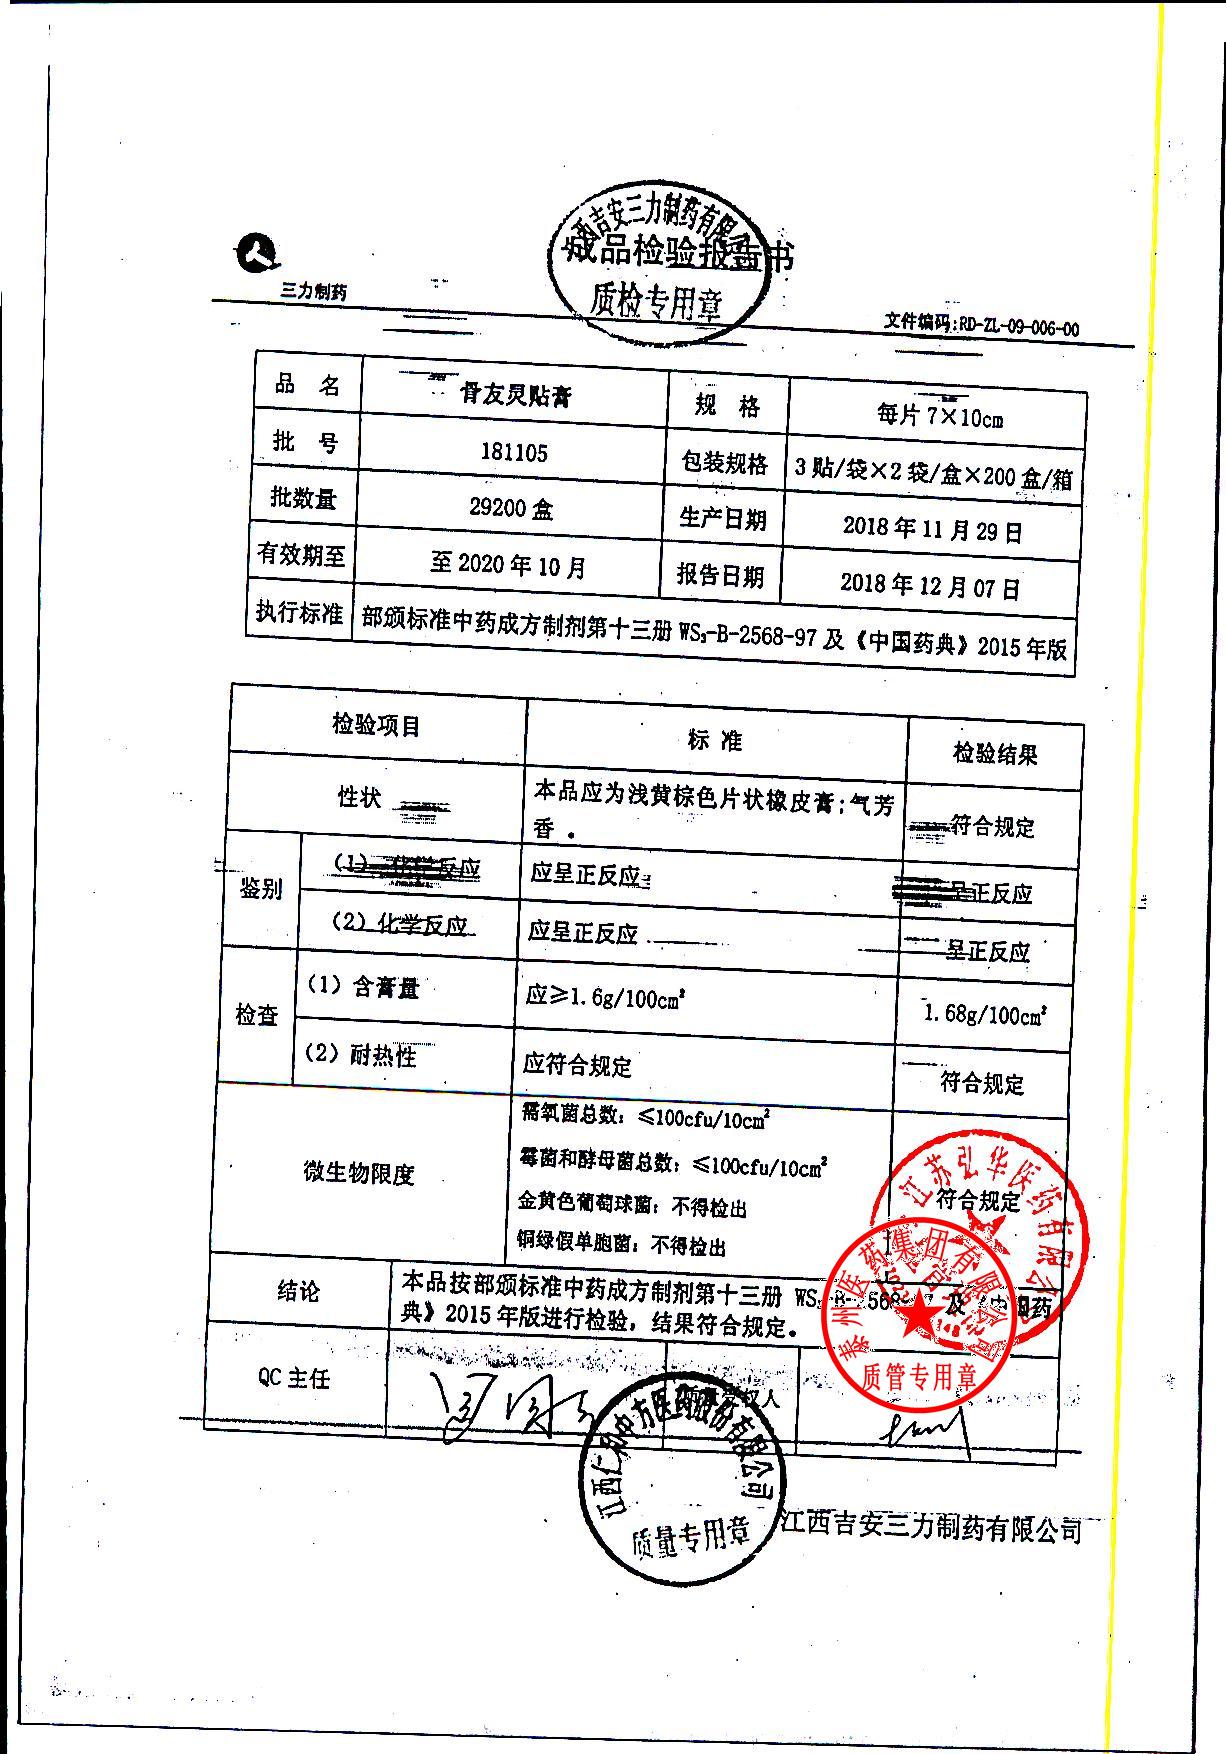 江西吉安三力制药有限公司
成品检验报告书
质检专用章
三力制药
文件编码:RD-ZL-09-006-00
品 名 骨友灵贴膏 规 格 每片7×10cm
批 号 181105 包装规格 3贴/袋×2袋/盒×200盒/箱
批数量 29200盒 生产日期 2018年11月29日
有效期至 至2020年10月 报告日期 2018年12月07日
执行标准 部颁标准中药成方制剂第十三册WS₃-B-2568-97及《中国药典》2015年版
检验项目 标 准 检验结果
性状 本品应为浅黄棕色片状橡皮膏;气芳
香。 符合规定
鉴别 (1)化学反应 应呈正反应 呈正反应
(2)化学反应 应呈正反应 呈正反应
检查 (1)含膏量 应≥1.6g/100cm² 1.68g/100cm²
(2)耐热性 应符合规定 符合规定
微生物限度 需氧菌总数:≤100cfu/10cm²
霉菌和酵母菌总数:≤100cfu/10cm²
金黄色葡萄球菌:不得检出 符合规定
铜绿假单胞菌:不得检出
江苏弘华医药有限公
泰州医药集团有限公司
质管专用章
结论 本品按部颁标准中药成方制剂第十三册 WS₃-B-2568-97及《中国药
典》2015年版进行检验,结果符合规定。
QC主任 权人
江西仁和中方医药股份有限公司
质量专用章
江西吉安三力制药有限公司